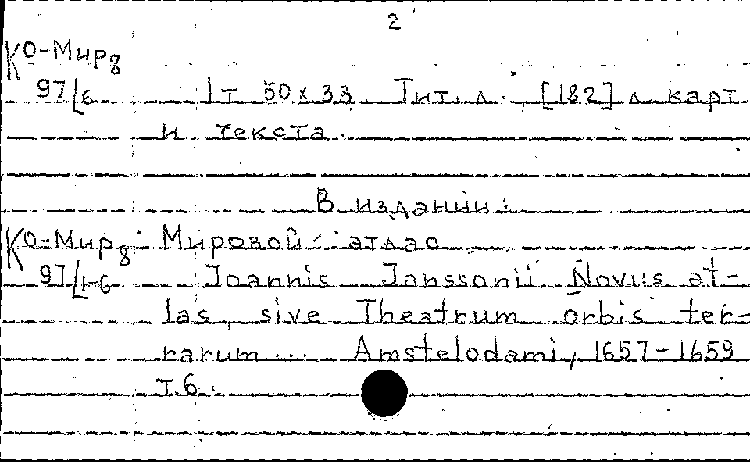 2
КО-Мир 8
97/6 1 т 50 х 33 Тит. л. [182] л карт
и текста.
В издании:
КО-Мир 8 Мировой атлас
97/1-6 Joannis Janssonii Novus at-
las, sive Theatrum orbis ter-
rarum... Amstelodami, 1657-1659
т.6.